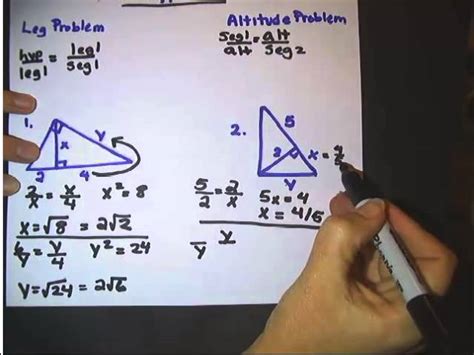 Leg Problem
hyp/leg1 = leg1/seg1
Altitude Problem
Seg1/alt = alt/Seg2
1.
x
y
2
4
2/x = x/4 x² = 8
x = √8 = 2√2
6/y = y/4 y² = 24
y = √24 = 2√6
2.
5
2
x = 4/5
y
5/2 = 2/x 5x = 4
x = 4/5
y y